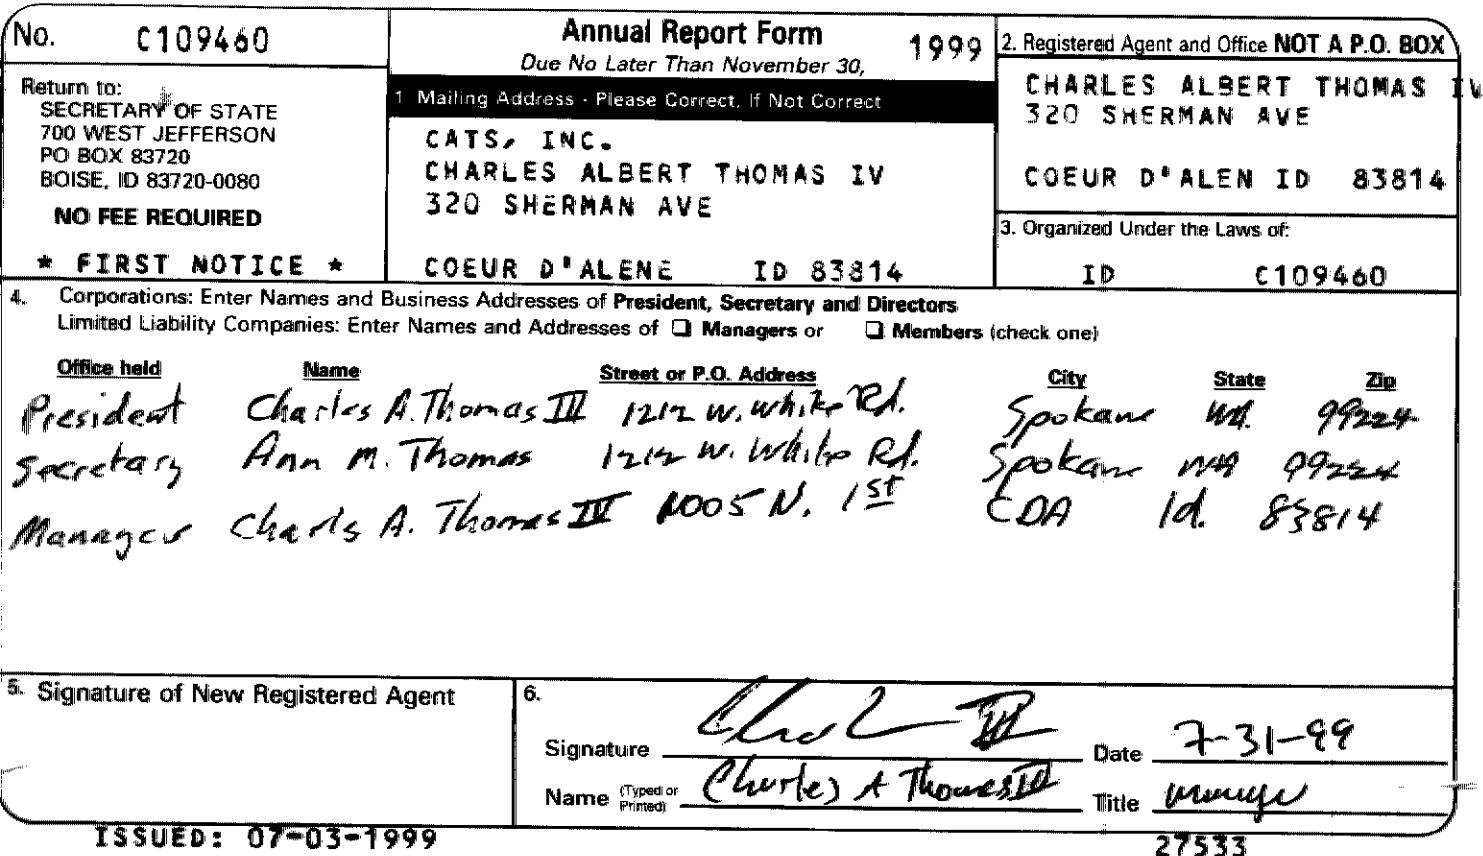 No. C109460
Annual Report Form 1999
Due No Later Than November 30,
Return to:
SECRETARY OF STATE
700 WEST JEFFERSON
PO BOX 83720
BOISE, ID 83720-0080
NO FEE REQUIRED
* FIRST NOTICE *
1 Mailing Address - Please Correct, If Not Correct
CATS, INC.
CHARLES ALBERT THOMAS IV
320 SHERMAN AVE
COEUR D'ALENE ID 83814
2. Registered Agent and Office NOT A P.O. BOX
CHARLES ALBERT THOMAS IV
320 SHERMAN AVE
COEUR D'ALEN ID 83814
3. Organized Under the Laws of:
ID C109460
4. Corporations: Enter Names and Business Addresses of President, Secretary and Directors
Limited Liability Companies: Enter Names and Addresses of ❑ Managers or ❑ Members (check one)
Office held Name Street or P.O. Address City State Zip
President Charles A. Thomas III 1212 W. White Rd. Spokane Wa. 99224
Secretary Ann M. Thomas 1212 W. White Rd. Spokane WA 99224
Manager Charls A. Thomas IV 1005 N. 1st CDA Id. 83814
5. Signature of New Registered Agent
6.
Signature Date 7-31-99
Name (Typed or Printed) Charles A Thomas IV Title manager
ISSUED: 07-03-1999
27533